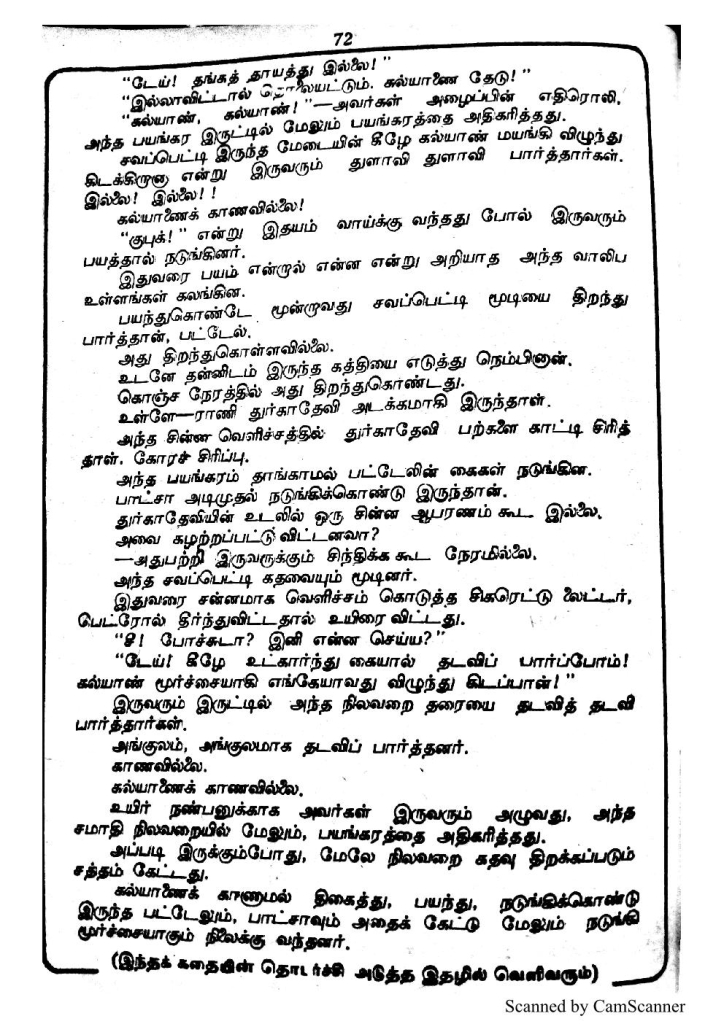 72
"டேய்! தங்கத் தாயத்து இல்லை!"
"இல்லாவிட்டால் தொலையட்டும். கல்யாணை தேடு!"
"கல்யாண், கல்யாண்!"—அவர்கள் அழைப்பின் எதிரொலி,
அந்த பயங்கர இருட்டில் மேலும் பயங்கரத்தை அதிகரித்தது.
சவப்பெட்டி இருந்த மேடையின் கீழே கல்யாண் மயங்கி விழுந்து
கிடக்கிறானா என்று இருவரும் துளாவி துளாவி பார்த்தார்கள்.
இல்லை! இல்லை!!
கல்யாணைக் காணவில்லை!
"குபுக்!" என்று இதயம் வாய்க்கு வந்தது போல் இருவரும்
பயத்தால் நடுங்கினர்.
இதுவரை பயம் என்றால் என்ன என்று அறியாத அந்த வாலிப
உள்ளங்கள் கலங்கின.
பயந்துகொண்டே மூன்றாவது சவப்பெட்டி மூடியை திறந்து
பார்த்தான், பட்டேல்.
அது திறந்துகொள்ளவில்லை.
உடனே தன்னிடம் இருந்த கத்தியை எடுத்து நெம்பினான்.
கொஞ்ச நேரத்தில் அது திறந்துகொண்டது.
உள்ளே—ராணி துர்காதேவி அடக்கமாகி இருந்தாள்.
அந்த சின்ன வெளிச்சத்தில் துர்காதேவி பற்களை காட்டி சிரித்
தாள். கோரச் சிரிப்பு.
அந்த பயங்கரம் தாங்காமல் பட்டேலின் கைகள் நடுங்கின.
பாட்சா அடிமுதல் நடுங்கிக்கொண்டு இருந்தான்.
துர்காதேவியின் உடலில் ஒரு சின்ன ஆபரணம் கூட இல்லை.
அவை கழற்றப்பட்டு விட்டனவா?
—அதுபற்றி இருவருக்கும் சிந்திக்க கூட நேரமில்லை.
அந்த சவப்பெட்டி கதவையும் மூடினர்.
இதுவரை சன்னமாக வெளிச்சம் கொடுத்த சிகரெட்டு லைட்டர்,
பெட்ரோல் தீர்ந்துவிட்டதால் உயிரை விட்டது.
"சீ! போச்சுடா? இனி என்ன செய்ய?"
"டேய்! கீழே உட்கார்ந்து கையால் தடவிப் பார்ப்போம்!
கல்யாண் மூர்ச்சையாகி எங்கேயாவது விழுந்து கிடப்பான்!"
இருவரும் இருட்டில் அந்த நிலவறை தரையை தடவித் தடவி
பார்த்தார்கள்.
அங்குலம், அங்குலமாக தடவிப் பார்த்தனர்.
காணவில்லை.
கல்யாணைக் காணவில்லை.
உயிர் நண்பனுக்காக அவர்கள் இருவரும் அழுவது, அந்த
சமாதி நிலவறையில் மேலும், பயங்கரத்தை அதிகரித்தது.
அப்படி இருக்கும்போது, மேலே நிலவறை கதவு திறக்கப்படும்
சத்தம் கேட்டது.
கல்யாணைக் காணாமல் திகைத்து, பயந்து, நடுங்கிக்கொண்டு
இருந்த பட்டேலும், பாட்சாவும் அதைக் கேட்டு மேலும் நடுங்கி
மூர்ச்சையாகும் நிலைக்கு வந்தனர்.
(இந்தக் கதையின் தொடர்ச்சி அடுத்த இதழில் வெளிவரும்)
Scanned by CamScanner